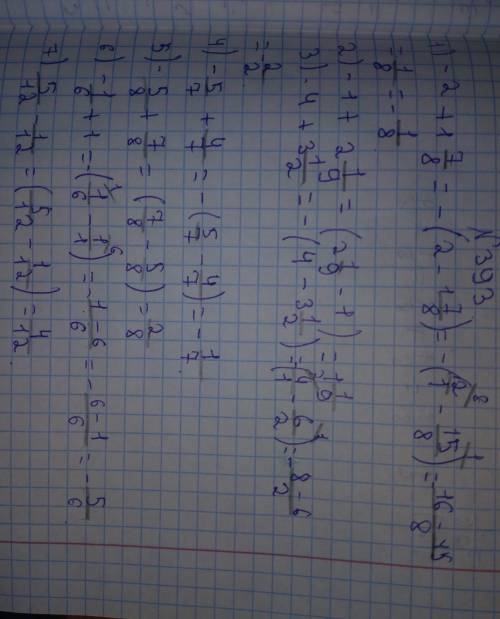 №393
1) -2 + 1 7/8 = -(2 - 1 7/8) = -(2/1 - 15/8) = 16-15/8
= 1/8 = -1/8
2) -1 + 2 1/9 = (2 1/9 - 1) = 1 1/9
3) -4 + 3 1/2 = -(4 - 3 1/2) = (4/1 - 6/2) = -8-6/2
= 2/2
4) -5/7 + 4/7 = -(5/7 - 4/7) = -1/7
5) -5/8 + 7/8 = (7/8 - 5/8) = 2/8
6) -1/6 + 1 = -(1/6 - 1/1) = -1-6/6 = -6-1/6 = -5/6
7) 5/12 - 1/12 = (5/12 - 1/12) = 4/12